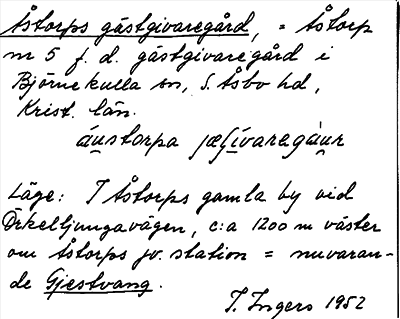 Åstorps gästgivaregård, = Åstorp
nr 5 f. d. gästgivaregård i
Björnekulla sn, S. Åsbo hd,
Krist. län.
áustorpa jæʃívaregáur
Läge: I Åstorps gamla by vid
Örkelljungavägen, c:a 1200 m väster
om Åstorps jv. station = nuvaran-
de Gjestvang.
I. Ingers 1952